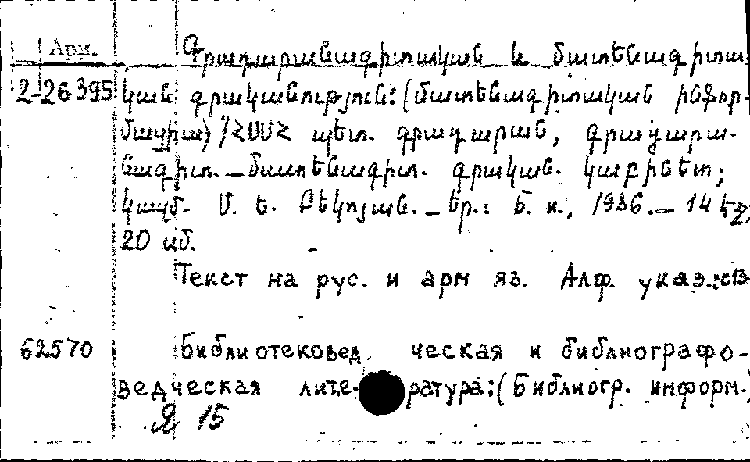 Арм. Գրադարանագիտական և մատենագիտա-
2-26395 կան գրականություն: (Մատենագիտական ինֆոր-
մացիա) / ՀՍՍՀ պետ. գրադարան, գրադարա-
նագիտ. – մատենագիտ. գրական. կաբինետ;
կազմ. Մ. Ե. Բեկոյան. – Եր.: Բ. и., 1986. – 14 էջ;
20 սմ.
Текст на рус. и арм яз. Алф. указ.:
62570 Библиотековед ческая и библиографо-
ведческая лите- ратура: (Библиогр. информ.
15